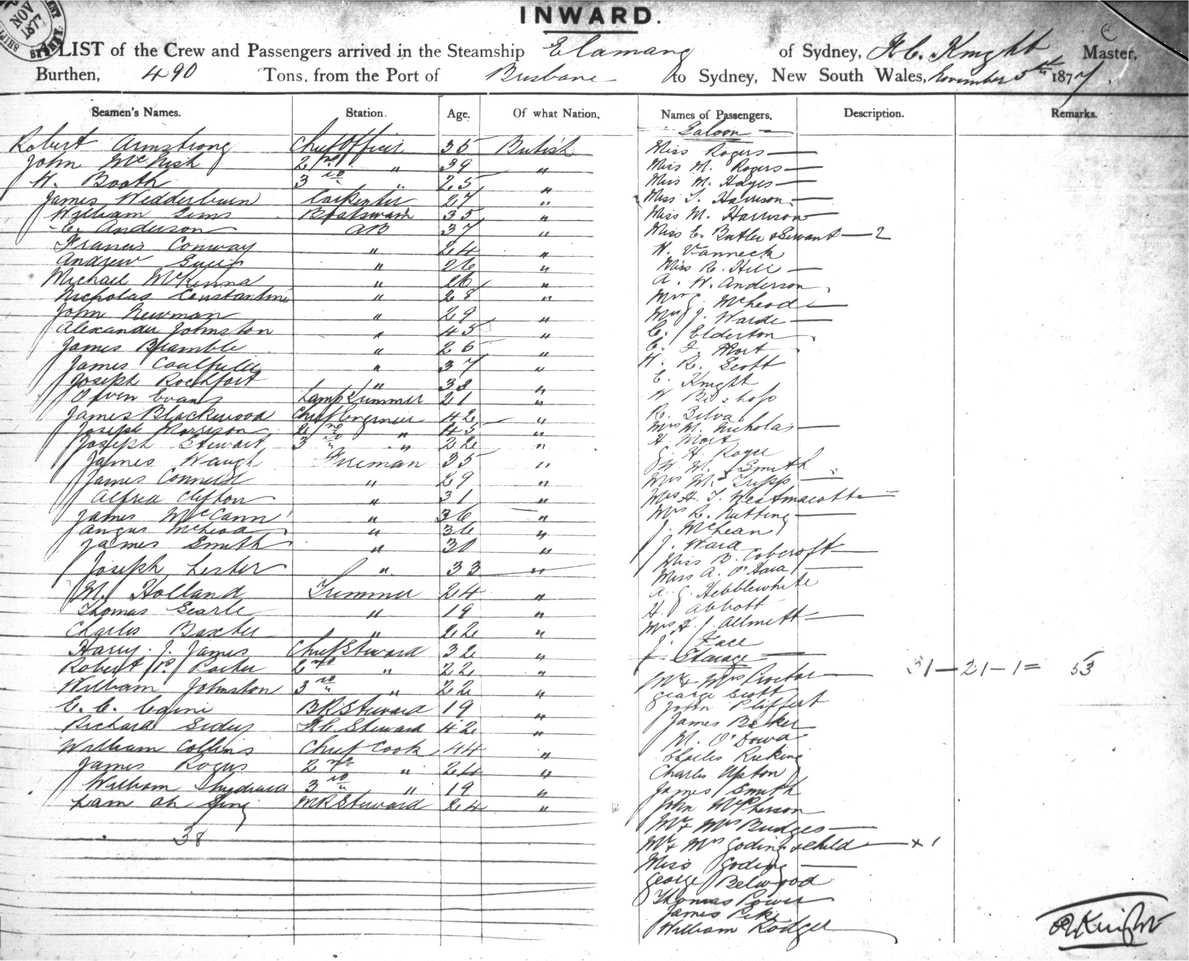 NOV
187
INWARD.
LIST of the Crew and Passengers arrived in the Steamship Elamang of Sydney, Knight Master,
Burthen, 490 Tons, from the Port of Brisbane to Sydney, New South Wales, November 5th 1877.
Seamen's Names. Station. Age. Of what Nation. Names of Passengers. Description. Remarks.
Robert Armstrong Chief Officer 35 British
John McNish 2nd " 39 "
W. Booth 3rd " 25 "
James Wedderburn Carpenter 27 "
William Sims Boatswain 35 "
C. Anderson AB 37 "
Francis Conway " 24 "
Andrew " 26 "
Michael McKenna " 26 "
Nicholas Constantine " 28 "
John Newman " 29 "
Alexander Johnston " 45 "
James Bramble " 26 "
James " 37 "
Joseph Rochfort " 38 "
Owen Evans Lamp Trimmer 21 "
James Blackwood Chief Engineer 42 "
Joseph Morrison 2nd " 45 "
Joseph Stewart 3rd " 22 "
James Waugh Fireman 35 "
James " 29 "
Alfred Clifton " 31 "
James McCann " 36 "
Angus McLeod " 36 "
James Smith " 30 "
Joseph Lester " 33 "
M. Holland Trimmer 24 "
Thomas Searle " 19 "
Charles Baxter " 22 "
Harry J. James Chief Steward 32 "
Robert Porter 2nd " 22 "
William Johnston 3rd " 22 "
C. C. 19 "
Richard Steward 42 "
William Collins Chief Cook 44 "
James Rogers 2nd " 24 "
William 3rd " 19 "
Lam Ah Steward 24 "
38
Saloon
Miss Rogers
Miss M. Rogers
Miss M. Hayes
Miss Harrison
Miss M. Harrison
Miss E. Butler & Servant — 2
H. Vanneck
Miss R. Hill
A. W. Anderson
McLeod
J. Warde
C. Elderton
C. F. Mort
H. R. Scott
C. Knight
W Bishop
R. Silva
Mrs M. Nicholas
H Mort
G. H. Roger
W. M. Smith
Mrs M. Tripp
Mrs H. T. Westmacott
Mrs R. Nutting
J. McLean
J. Ward
Miss B. Cobcroft
Miss A. O'Hara
A. G. Hebblewhite
H Abbott
Mrs H. J.
J. Face
Steerage 31 — 21 — 1 = 53
Mr & Mrs Proctor
George Scott
John
James Baker
M. O'Dowd
Charles
Charles Upton
James Smith
John McPherson
Mr & Mrs Budges
Mr & Mrs Goding & Child — + 1
Miss Goding
George Belwood
Thomas Power
James Pike
William Rodger
Knight